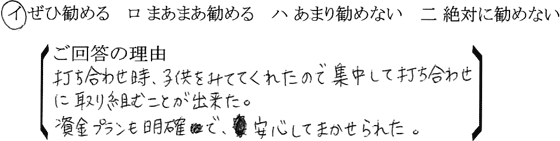 イ ぜひ勧める ロ まあまあ勧める ハ あまり勧めない 二 絶対に勧めない
ご回答の理由
打ち合わせ時、子供をみててくれたので集中して打ち合わせ
に取り組むことが出来た。
資金プランも明確で、安心してまかせられた。